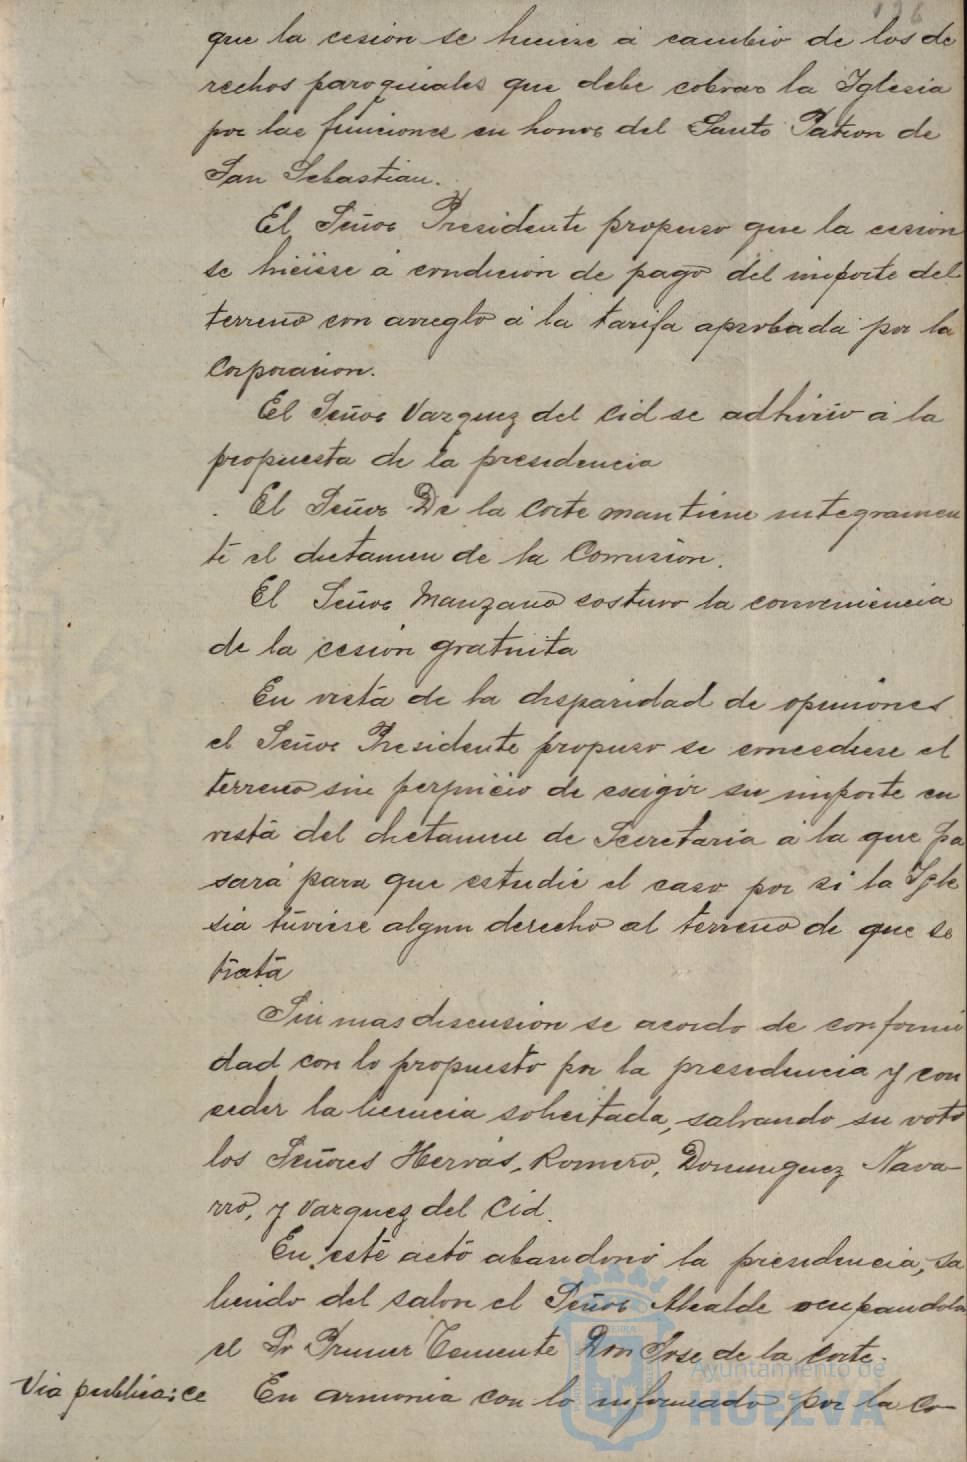 136
que la cesión se huiese á cambio de los de
rechos paroquiales que debe cobrar la Iglesia
por las funciones en honor del Santo Patron de
San Sebastian.
El Señor Presidente propuso que la cesion
se hiciese á condicion de pago del importe del
terreno con arreglo á la tarifa aprobada por la
Corporacion.
El Señor Vazquez del Cid se adhirió á la
propuesta de la presidencia
El Señor De la Corte mantiene integramen
te el dictamen de la Comision.
El Señor Manzano costuvo la conveniencia
de la cesión gratuita
En vista de la disparidad de opiniones
el Señor Presidente propuso se concediese el
terreno sin perjuicio de exigir su importe en
vista del dictamen de Secretaria á la que pa
sará para que estudie el caso por si la Igle
sia tuviese algun derecho al terreno de que se
trata
Sin mas discusion se acordo de conformi
dad con lo propuesto por la presidencia y con
ceder la licencia solicitada, salvando su voto
los Señores Hervás, Romero, Dominguez Nava-
rro, y Vazquez del Cid.
En este acto abandonó la presidencia, sa
liendo del salon el Señor Alcalde ocupandola
el Sr Primer Teniente Don Jose de la Corte.
Via publica: ce En armonia con lo informado por la Co-
Ayuntamiento de
HUELVA